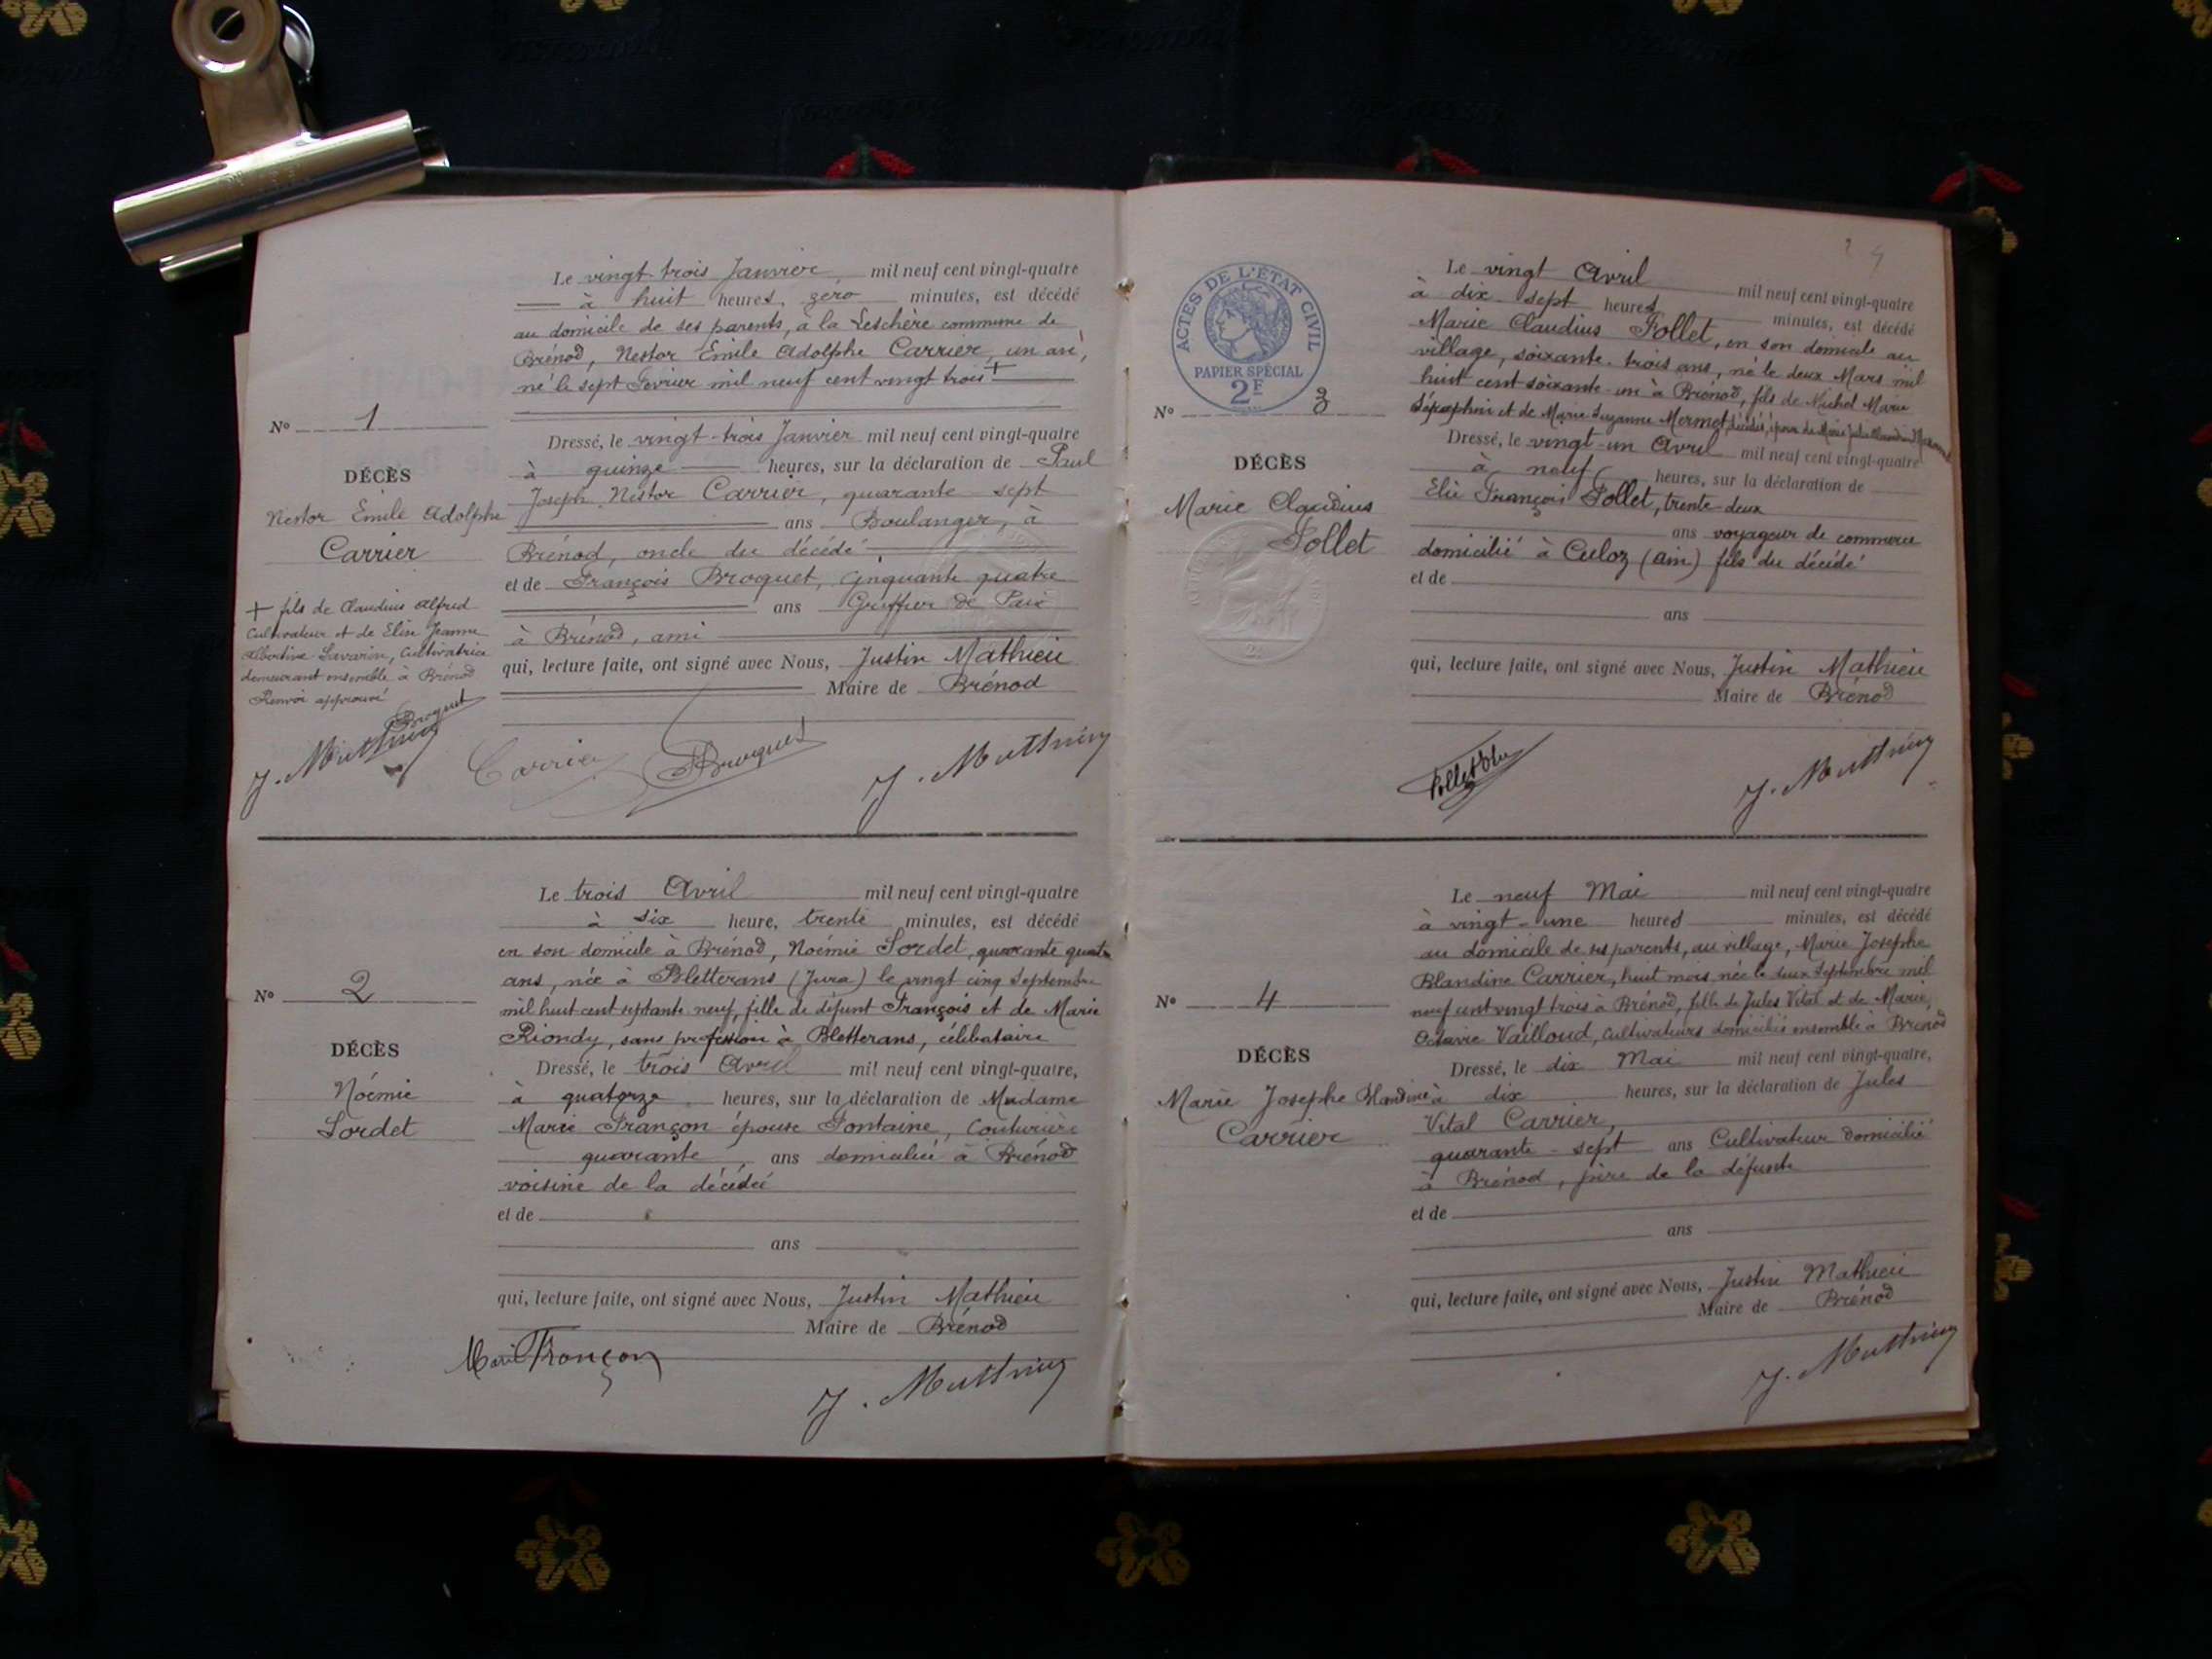 Le vingt-trois Janvier mil neuf cent vingt-quatre
à huit heures, zéro minutes, est décédé
au domicile de ses parents, à la Leschère commune de
Brénod, Nestor Emile Adolphe Carrier, un an,
né le sept Fevrier mil neuf cent vingt trois +
No 1
DÉCÈS
Nestor Emile Adolphe
Carrier
+ fils de Claudius Alfred
Cultivateur et de Elise Jeanne
Albertine Savarin, Cultivatrice
demeurant ensemble à Brénod
Renvoi approuvé
Broquet
J. Mathieu
Dressé, le vingt-trois Janvier mil neuf cent vingt-quatre
à quinze heures, sur la déclaration de Paul
Joseph Nestor Carrier, quarante-sept
ans Boulanger, à
Brénod, oncle du décédé
et de François Broquet, cinquante quatre
ans Greffier de Paix
à Brénod, ami
qui, lecture faite, ont signé avec Nous, Justin Mathieu
Maire de Brénod
Carrier Broquet J. Mathieu
Le trois Avril mil neuf cent vingt-quatre
à six heure, trente minutes, est décédé
en son domicile à Brénod, Noémie Sordet, quarante quatre
ans, née à Bletterans (Jura) le vingt cinq Septembre
mil huit cent septante neuf, fille de défunt François et de Marie
Riondy, sans profession à Bletterans, célibataire
No 2
DÉCÈS
Noémie
Sordet
Dressé, le trois Avril mil neuf cent vingt-quatre,
à quatorze heures, sur la déclaration de Madame
Marie Françon épouse Fontaine, Couturière
quarante, ans domiciliée à Brénod
voisine de la décédée
et de
ans
qui, lecture faite, ont signé avec Nous, Justin Mathieu
Maire de Brénod
Marie Françon
J. Mathieu
ACTES DE L'ÉTAT CIVIL
PAPIER SPÉCIAL
2F
Le vingt Avril mil neuf cent vingt-quatre
à dix-sept heures minutes, est décédé
Marie Claudius Follet, en son domicile au
village, soixante-trois ans, né le deux Mars mil
huit cent soixante-un à Brénod, fils de Michel Marie
Séraphin et de Marie Suzanne Mermet, décédés, époux de Marie
No 3
DÉCÈS
Marie Claudius
Follet
Dressé, le vingt-un Avril mil neuf cent vingt-quatre
à neuf heures, sur la déclaration de
Elie François Follet, trente-deux
ans voyageur de commerce
domicilié à Culoz (ain) fils du décédé
et de
ans
qui, lecture faite, ont signé avec Nous, Justin Mathieu
Maire de Brénod
J. Mathieu
Le neuf Mai mil neuf cent vingt-quatre
à vingt-une heures minutes, est décédé
au domicile de ses parents, au village, Marie Josephe
Blandine Carrier, huit mois, née le deux Septembre mil
neuf cent vingt trois à Brénod, fille de Jules Vital et de Marie
Octavie Vailloud, cultivateurs domiciliés ensemble à Brénod
No 4
DÉCÈS
Marie Josephe Blandine
Carrier
Dressé, le dix Mai mil neuf cent vingt-quatre,
à dix heures, sur la déclaration de Jules
Vital Carrier,
quarante-sept ans Cultivateur domicilié
à Brénod, père de la défunte
et de
ans
qui, lecture faite, ont signé avec Nous, Justin Mathieu
Maire de Brénod
J. Mathieu